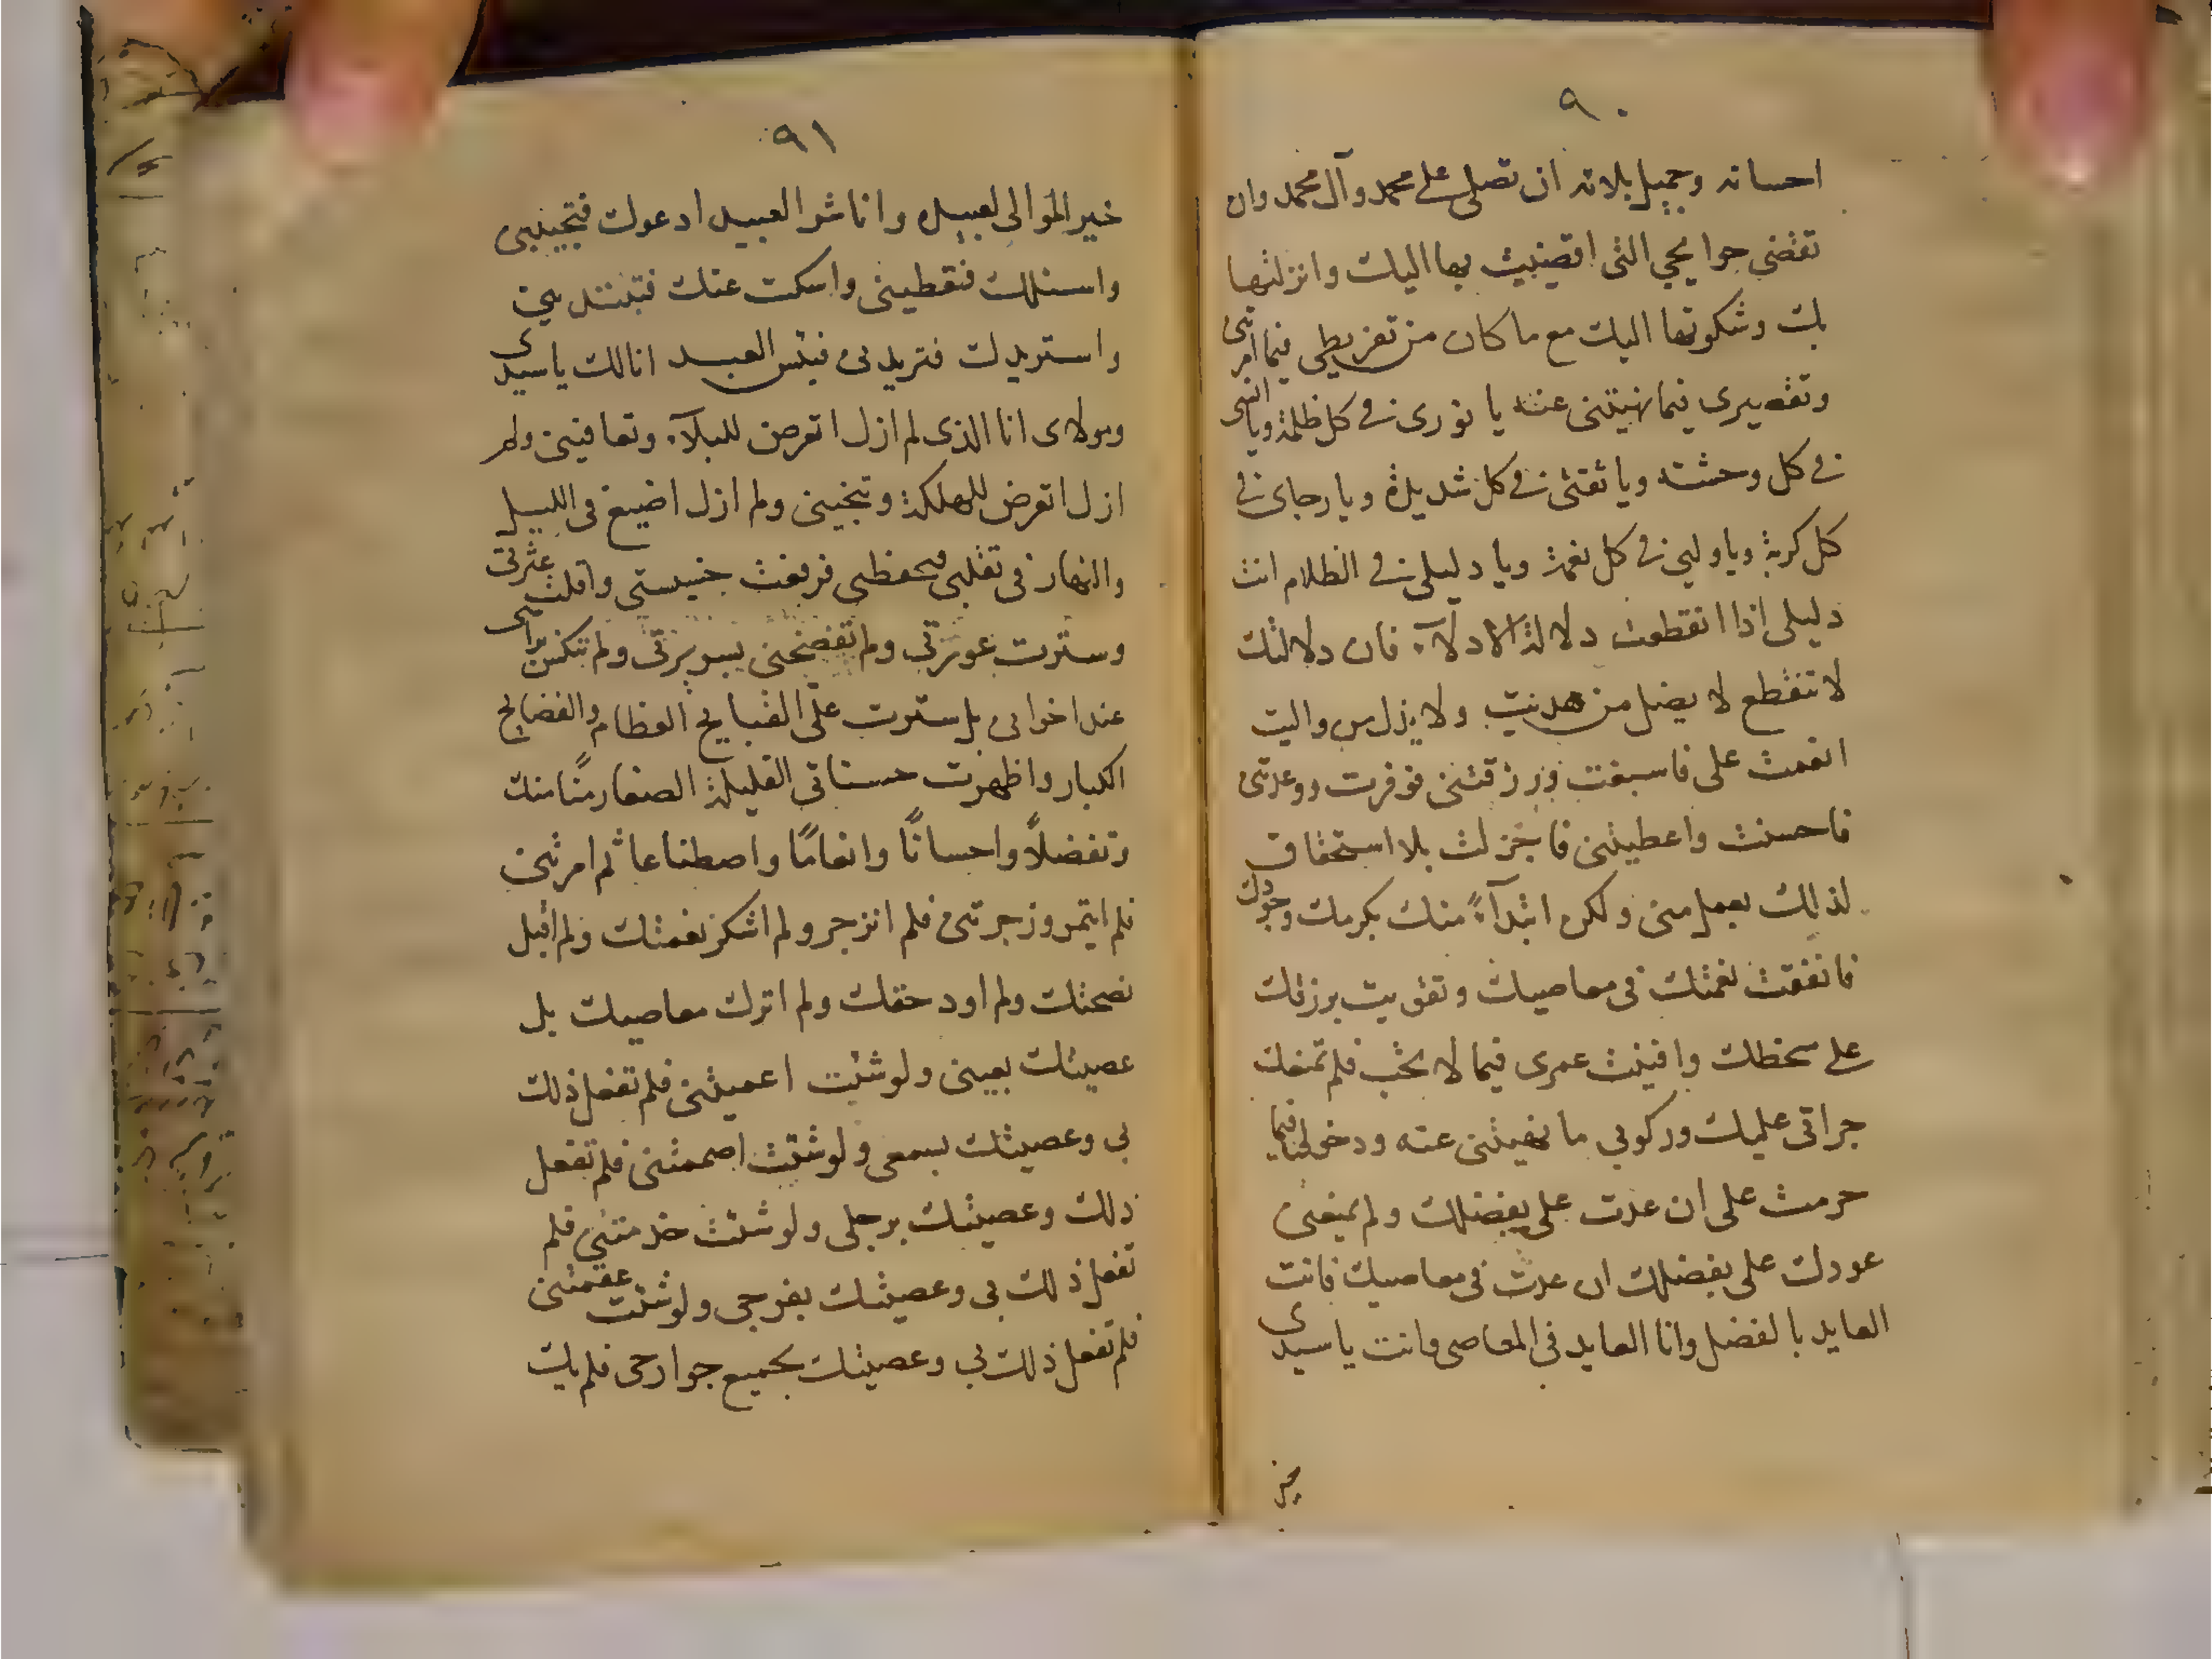 ٩٠
احسانه وجميل بلائه ان تصلى على محمد وآل محمد وان
تقضى حوايجي التى افضيت بها اليك وانزلتها
بك وشكوتها اليك مع ما كان من تفريطي فيما امرتنى
وتقصيرى فيما نهيتنى عنه يا نورى فى كل ظلمة ويا انسى
فى كل وحشته ويا ثقتى فى كل شديدة ويا رجاى فى
كل كربة ويا وليى فى كل نعمة ويا دليلى فى الظلام انت
دليلى اذا انقطعت دلالة الادلاء فان دلالتك
لا تنقطع لا يضل من هديت ولا يذل من واليت
انعمت على فاسبغت ورزقتنى فوفرت ووعدتنى
فاحسنت واعطيتنى فاجزلت بلا استحقاق
لذلك بعمل منى ولكن ابتدآءً منك بكرمك وجودك
فانفقت نعمتك فى معاصيك وتقويت برزقك
على سخطك وافنيت عمرى فيما لا تحب فلم تمنعك
جراتى عليك وركوبى ما نهيتنى عنه ودخولى فيما
حرمت على ان عدت على بفضلك ولم يمنعنى
عودك على بفضلك ان عدت فى معاصيك فانت
العايد بالفضل وانا العايد فى المعاصى وانت يا سيدى
خير
٩١
خير الموالى لعبيده وانا شر العبيد ادعوك فتجيبنى
واسئلك فتعطينى واسكت عنك فتبتدينى
واستزيدك فتزيدنى فبئس العبد انا لك يا سيدى
ومولاى انا الذى لم ازل اتعرض للبلآء وتعافينى ولم
ازل اتعرض للهلكة وتنجينى ولم ازل اضيع فى الليل
والنهار فى تقلبى فتحفظنى فرفعت خسيستى واقلت عثرتى
وسترت عورتى ولم تفضحنى بسريرتى ولم تنكس براسى
عند اخوانى بل سترت على القبايح العظام والفضايح
الكبار واظهرت حسناتى القليلة الصغار منًا منك
وتفضلاً واحسانًا وانعامًا واصطناعا ثم امرتنى
فلم ايتمر وزجرتنى فلم انزجر ولم اشكر نعمتك ولم اقبل
نصحتك ولم اود حقك ولم اترك معاصيك بل
عصيتك بعينى ولو شئت اعميتنى فلم تفعل ذلك
بى وعصيتك بسمعى ولو شئت اصممتنى فلم تفعل
ذلك وعصيتك برجلى ولو شئت جذمتنى فلم
تفعل ذلك بى وعصيتك بفرجى ولو شئت عقمتنى
فلم تفعل ذلك بى وعصيتك بجميع جوارحى فلم يك